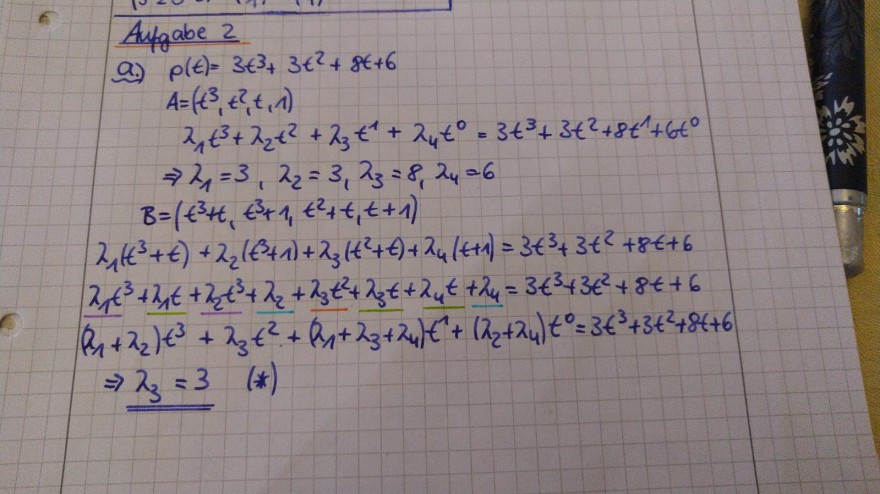 Aufgabe 2
a.) p(t) = 3t³ + 3t² + 8t + 6
A = (t³, t², t, 1)
λ₁t³ + λ₂t² + λ₃t¹ + λ₄t⁰ = 3t³ + 3t² + 8t¹ + 6t⁰
⇒ λ₁ = 3, λ₂ = 3, λ₃ = 8, λ₄ = 6
B = (t³+t, t³+1, t²+t, t+1)
λ₁(t³+t) + λ₂(t³+1) + λ₃(t²+t) + λ₄(t+1) = 3t³ + 3t² + 8t + 6
λ₁t³ + λ₁t + λ₂t³ + λ₂ + λ₃t² + λ₃t + λ₄t + λ₄ = 3t³ + 3t² + 8t + 6
(λ₁+λ₂)t³ + λ₃t² + (λ₁+λ₃+λ₄)t¹ + (λ₂+λ₄)t⁰ = 3t³ + 3t² + 8t + 6
⇒ λ₃ = 3 (*)